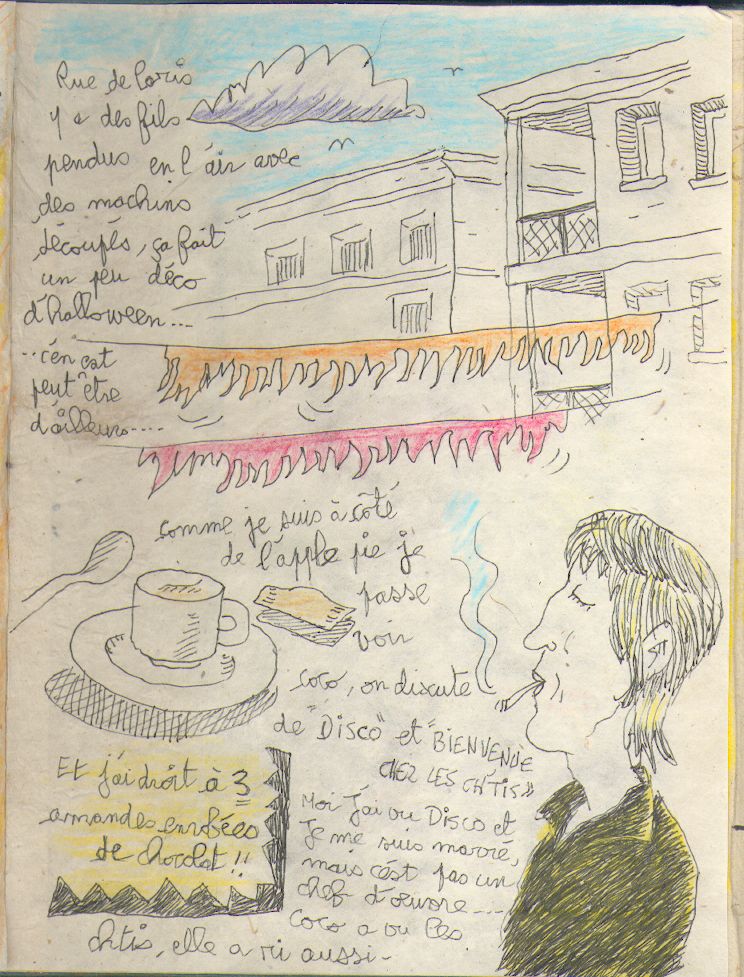 Rue de Paris
y a des fils
pendus en l'air avec
des machins
découpés, ça fait
un peu déco
d'halloween...
..c'en est
peut être
d'ailleurs.....
comme je suis à côté
de l'apple pie je
passe
voir
coco, on discute
de "DISCO" et "BIENVENUE
CHEZ LES CH'TIS"
Et j'ai droit à 3
amandes enrobées
de chocolat!!
Moi j'ai vu Disco et
je me suis marré,
mais c'est pas un
chef d'oeuvre....
Coco a vu les
chtis, elle a ri aussi-